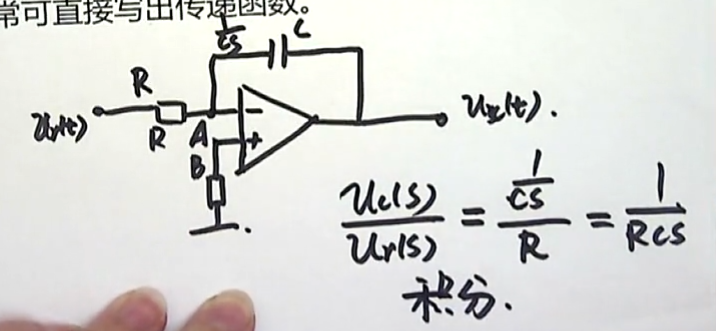 常可直接写出传递函数。
1/CS
C
R
R
A
B
-
+
Ur(t)
Uc(t).
Uc(S)/Ur(S) = (1/CS)/R = 1/RCS
积分.